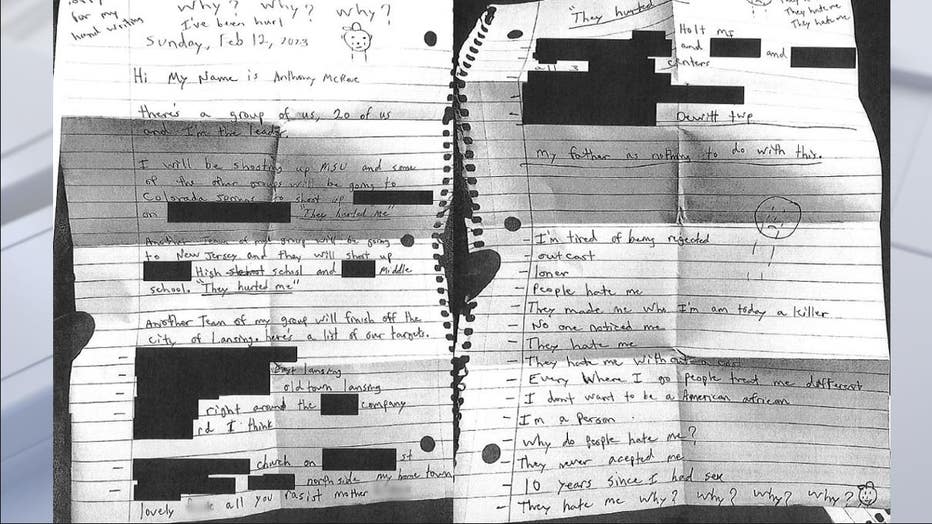 for my
hand writing
why? why? why?
I've been hurt
Sunday, Feb 12, 2023
Hi My Name is Anthony McRae
there's a group of us, 20 of us
and I'm the leader
I will be shooting up MSU and some
of the other groups will be going to
Colorada springs to shoot up
on "They hurted me"
Another Team of my group will be going
to New Jersey and they will shoot up
High school and Middle
school. "They hurted me"
Another Team of my group will finish off the
city of Lansing. here's a list of our targets.
- 
- East lansing
- old town lansing
- right around the company
- rd I think
- church on st
- north side my home town
lovely all you rasist mother
"They hurted
They hate me
They hate me
Holt MI
- and and
all 3 centers
- 
- Dewitt twp
my father as nothing to do with this.
- I'm tired of being rejected
- outcast
- loner
- People hate me
- They made me who I'm am today a killer
- No one noticed me
- They hate me
- They hate me
- Every where I go people treat me different
- I dont want to be a American african
- I'm a person
- why do people hate me?
- They never acepted me
- 10 years since I had sex
- They hate me why? why? why? why?